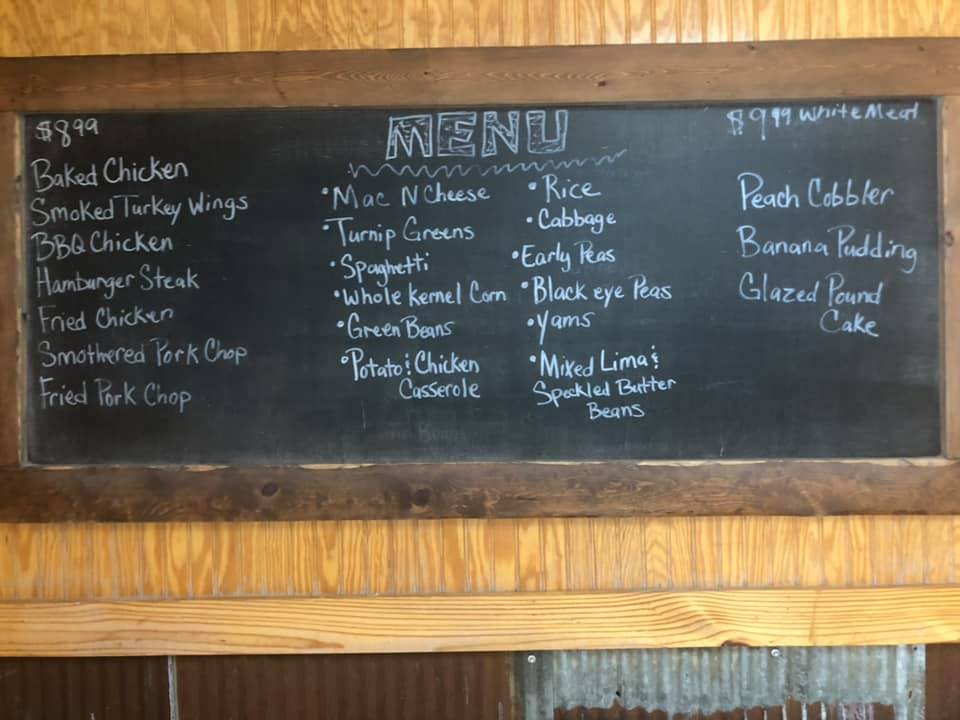 $8.99
Baked Chicken
Smoked Turkey Wings
BBQ Chicken
Hamburger Steak
Fried Chicken
Smothered Pork Chop
Fried Pork Chop
MENU
• Mac N Cheese
• Turnip Greens
• Spaghetti
• Whole Kernel Corn
• Green Beans
• Potato & Chicken
Casserole
• Rice
• Cabbage
• Early Peas
• Black eye Peas
• Yams
• Mixed Lima &
Speckled Butter
Beans
$9.99 White Meat
Peach Cobbler
Banana Pudding
Glazed Pound
Cake